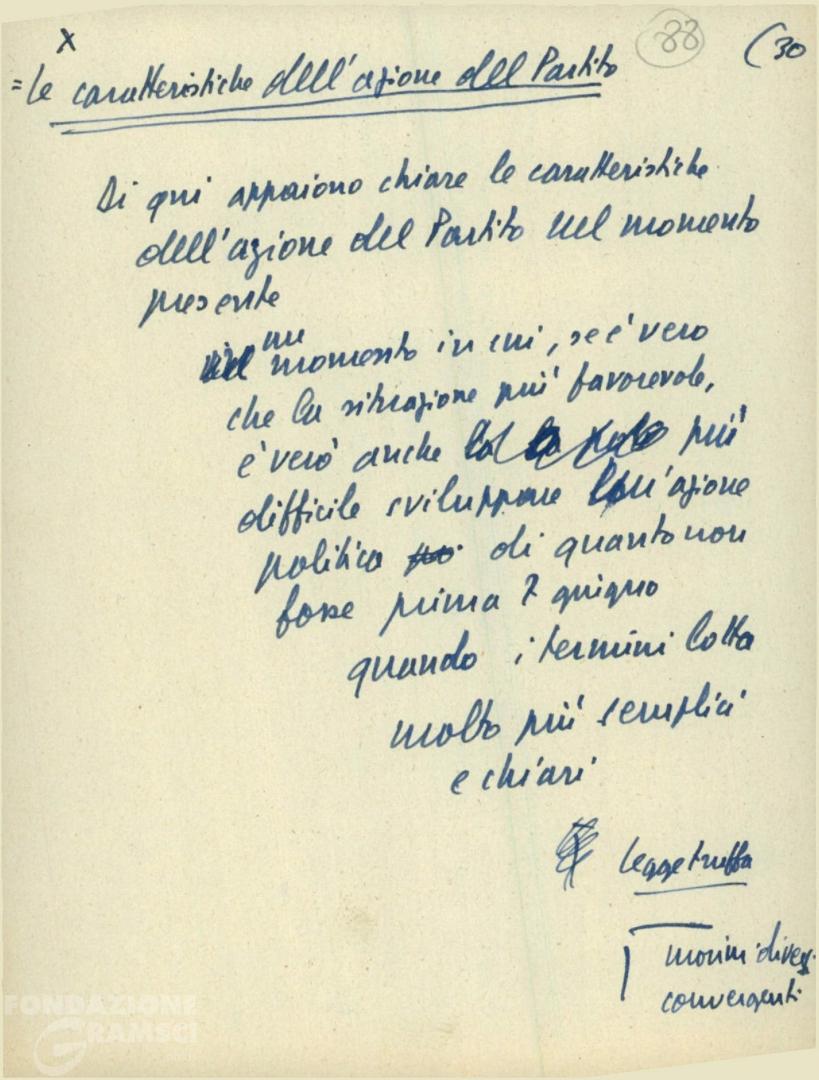 x
88
(30
= Le caratteristiche dell'azione del Partito
Di qui appaiono chiare le caratteristiche
dell'azione del Partito nel momento
presente
un
momento in cui, se è vero
che la situazione più favorevole,
è vero anche più
difficile sviluppare un'azione
politica di quanto non
fosse prima 7 giugno
quando i termini lotta
molto più semplici
e chiari
legge truffa
convergenti
FONDAZIONE
GRAMSCI